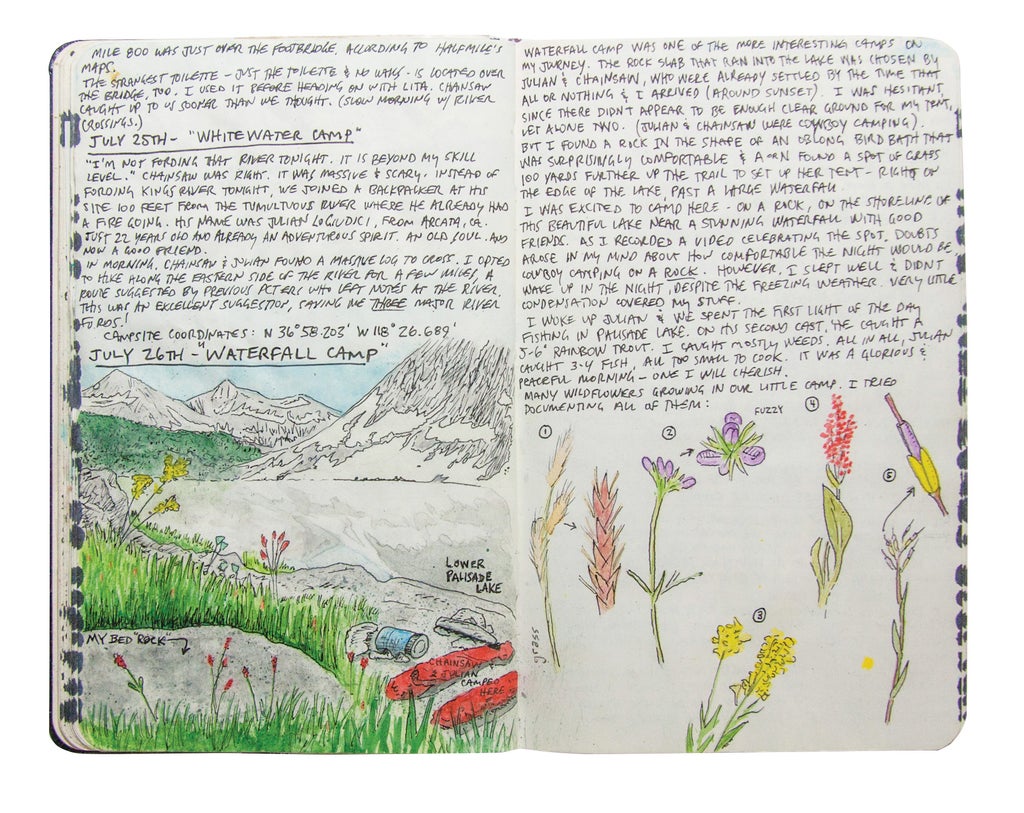 MILE 800 WAS JUST OVER THE FOOTBRIDGE, ACCORDING TO HALFMILE'S
MAPS.
THE STRANGEST TOILETTE - JUST THE TOILETTE & NO WALLS - IS LOCATED OVER
THE BRIDGE, TOO. I USED IT BEFORE HEADING ON WITH LITA. CHAINSAW
CAUGHT UP TO US SOONER THAN WE THOUGHT. (SLOW MORNING W/ RIVER
CROSSINGS.)
JULY 25TH - "WHITEWATER CAMP"
"I'M NOT FORDING THAT RIVER TONIGHT. IT IS BEYOND MY SKILL
LEVEL." CHAINSAW WAS RIGHT. IT WAS MASSIVE & SCARY. INSTEAD OF
FORDING KINGS RIVER TONIGHT, WE JOINED A BACKPACKER AT HIS
SITE 100 FEET FROM THE TUMULTUOUS RIVER WHERE HE ALREADY HAD
A FIRE GOING. HIS NAME WAS JULIAN LOGIUDICI, FROM ARCATA, CA.
JUST 22 YEARS OLD AND ALREADY AN ADVENTUROUS SPIRIT. AN OLD SOUL. AND
NOW A GOOD FRIEND.
IN MORNING, CHAINSAW & JULIAN FOUND A MASSIVE LOG TO CROSS. I OPTED
TO HIKE ALONG THE EASTERN SIDE OF THE RIVER FOR A FEW MILES, A
ROUTE SUGGESTED BY PREVIOUS PCTERS WHO LEFT NOTES AT THE RIVER.
THIS WAS AN EXCELLENT SUGGESTION, SAVING ME THREE MAJOR RIVER
FORDS!
CAMPSITE COORDINATES: N 36°58.203' W 118°26.689'
JULY 26TH - "WATERFALL CAMP"
LOWER
PALISADE
LAKE
MY BED "ROCK"
CHAINSAW
& JULIAN
CAMPED
HERE
WATERFALL CAMP WAS ONE OF THE MORE INTERESTING CAMPS ON
MY JOURNEY. THE ROCK SLAB THAT RAN INTO THE LAKE WAS CHOSEN BY
JULIAN & CHAINSAW, WHO WERE ALREADY SETTLED BY THE TIME THAT
ALL OR NOTHING & I ARRIVED (AROUND SUNSET). I WAS HESITANT,
SINCE THERE DIDN'T APPEAR TO BE ENOUGH CLEAR GROUND FOR MY TENT,
LET ALONE TWO. (JULIAN & CHAINSAW WERE COWBOY CAMPING).
BUT I FOUND A ROCK IN THE SHAPE OF AN OBLONG BIRD BATH THAT
WAS SURPRISINGLY COMFORTABLE & FOUND A SPOT OF GRASS
100 YARDS FURTHER UP THE TRAIL TO SET UP HER TENT - RIGHT ON
THE EDGE OF THE LAKE, PAST A LARGE WATERFALL.
I WAS EXCITED TO CAMP HERE - ON A ROCK, ON THE SHORELINE OF
THIS BEAUTIFUL LAKE NEAR A STUNNING WATERFALL WITH GOOD
FRIENDS. AS I RECORDED A VIDEO CELEBRATING THE SPOT, DOUBTS
AROSE IN MY MIND ABOUT HOW COMFORTABLE THE NIGHT WOULD BE
COWBOY CAMPING ON A ROCK. HOWEVER, I SLEPT WELL & DIDN'T
WAKE UP IN THE NIGHT, DESPITE THE FREEZING WEATHER. VERY LITTLE
CONDENSATION COVERED MY STUFF.
I WOKE UP JULIAN & WE SPENT THE FIRST LIGHT OF THE DAY
FISHING IN PALISADE LAKE. ON HIS SECOND CAST, HE CAUGHT A
5-6" RAINBOW TROUT. I CAUGHT MOSTLY WEEDS. ALL IN ALL, JULIAN
CAUGHT 3-4 FISH, ALL TOO SMALL TO COOK. IT WAS A GLORIOUS &
PEACEFUL MORNING - ONE I WILL CHERISH.
MANY WILDFLOWERS GROWING IN OUR LITTLE CAMP. I TRIED
DOCUMENTING ALL OF THEM:
1
grass
2
FUZZY
3
4
5